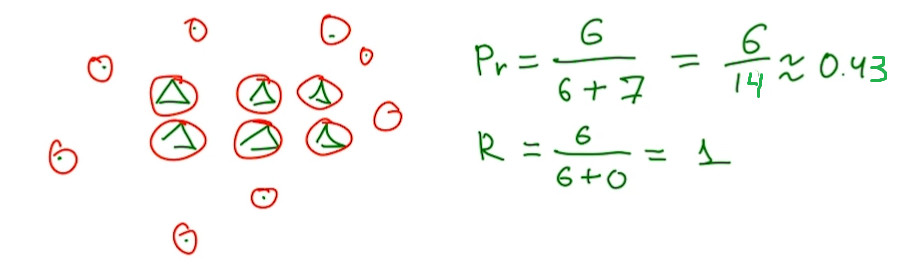 Pr = 6 / (6 + 7) = 6 / 14 ≈ 0.43
R = 6 / (6 + 0) = 1